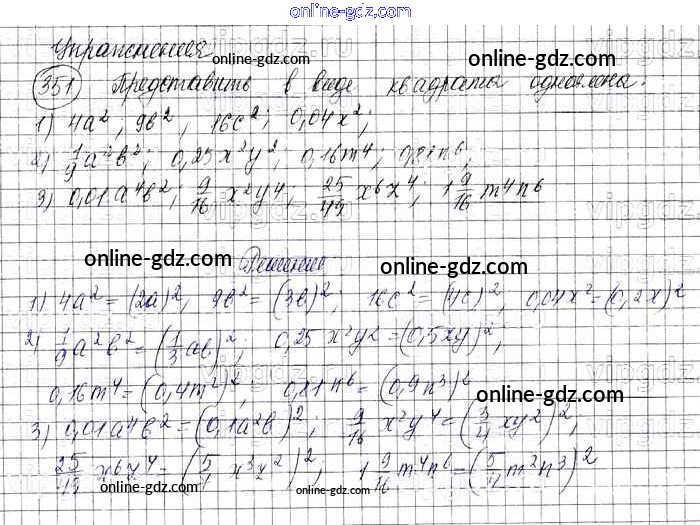 online-gdz.com
Упражнения online-gdz.com online-gdz.com
351 Представить в виде квадрата одночлена:
1) 4a², 9b², 16c²; 0,04x²;
online-gdz.com online-gdz.com
2) 1/9 a²b²; 0,25x²y²; 0,16m⁴; 0,81n⁶;
3) 0,01a⁴b²; 9/16 x²y⁴; 25/49 x⁶z⁴; 1 9/16 m⁴n⁶
vipgdz.ru
online-gdz.com Решение online-gdz.com
1) 4a² = (2a)², 9b² = (3b)²; 16c² = (4c)², 0,04x² = (0,2x)²
2) 1/9 a²b² = (1/3 ab)²; 0,25x²y² = (0,5xy)²;
0,16m⁴ = (0,4m²)²; 0,81n⁶ = (0,9n³)²
online-gdz.com online-gdz.com
3) 0,01a⁴b² = (0,1a²b)²; 9/16 x²y⁴ = (3/4 xy²)²,
25/49 x⁶z⁴ = (5/7 x³z²)²; 1 9/16 m⁴n⁶ = (5/4 m²n³)²
online-gdz.com online-gdz.com online-gdz.com